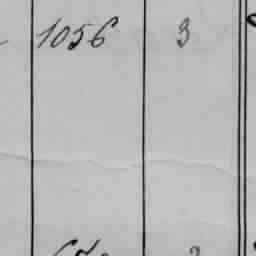 1056 3